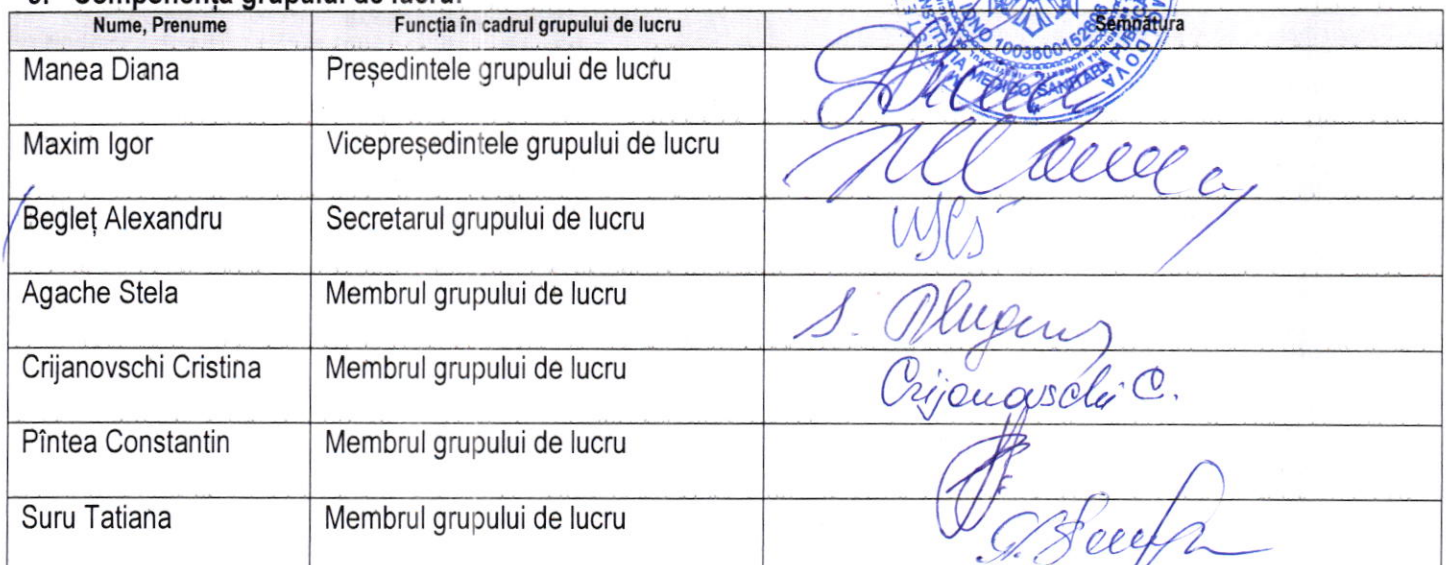 Componența grupului de lucru:
Nume, Prenume Funcția în cadrul grupului de lucru Semnătura
Manea Diana Președintele grupului de lucru
Maxim Igor Vicepreședintele grupului de lucru
Begleț Alexandru Secretarul grupului de lucru
Agache Stela Membrul grupului de lucru
Crijanovschi Cristina Membrul grupului de lucru Crijanovschi C.
Pîntea Constantin Membrul grupului de lucru
Suru Tatiana Membrul grupului de lucru